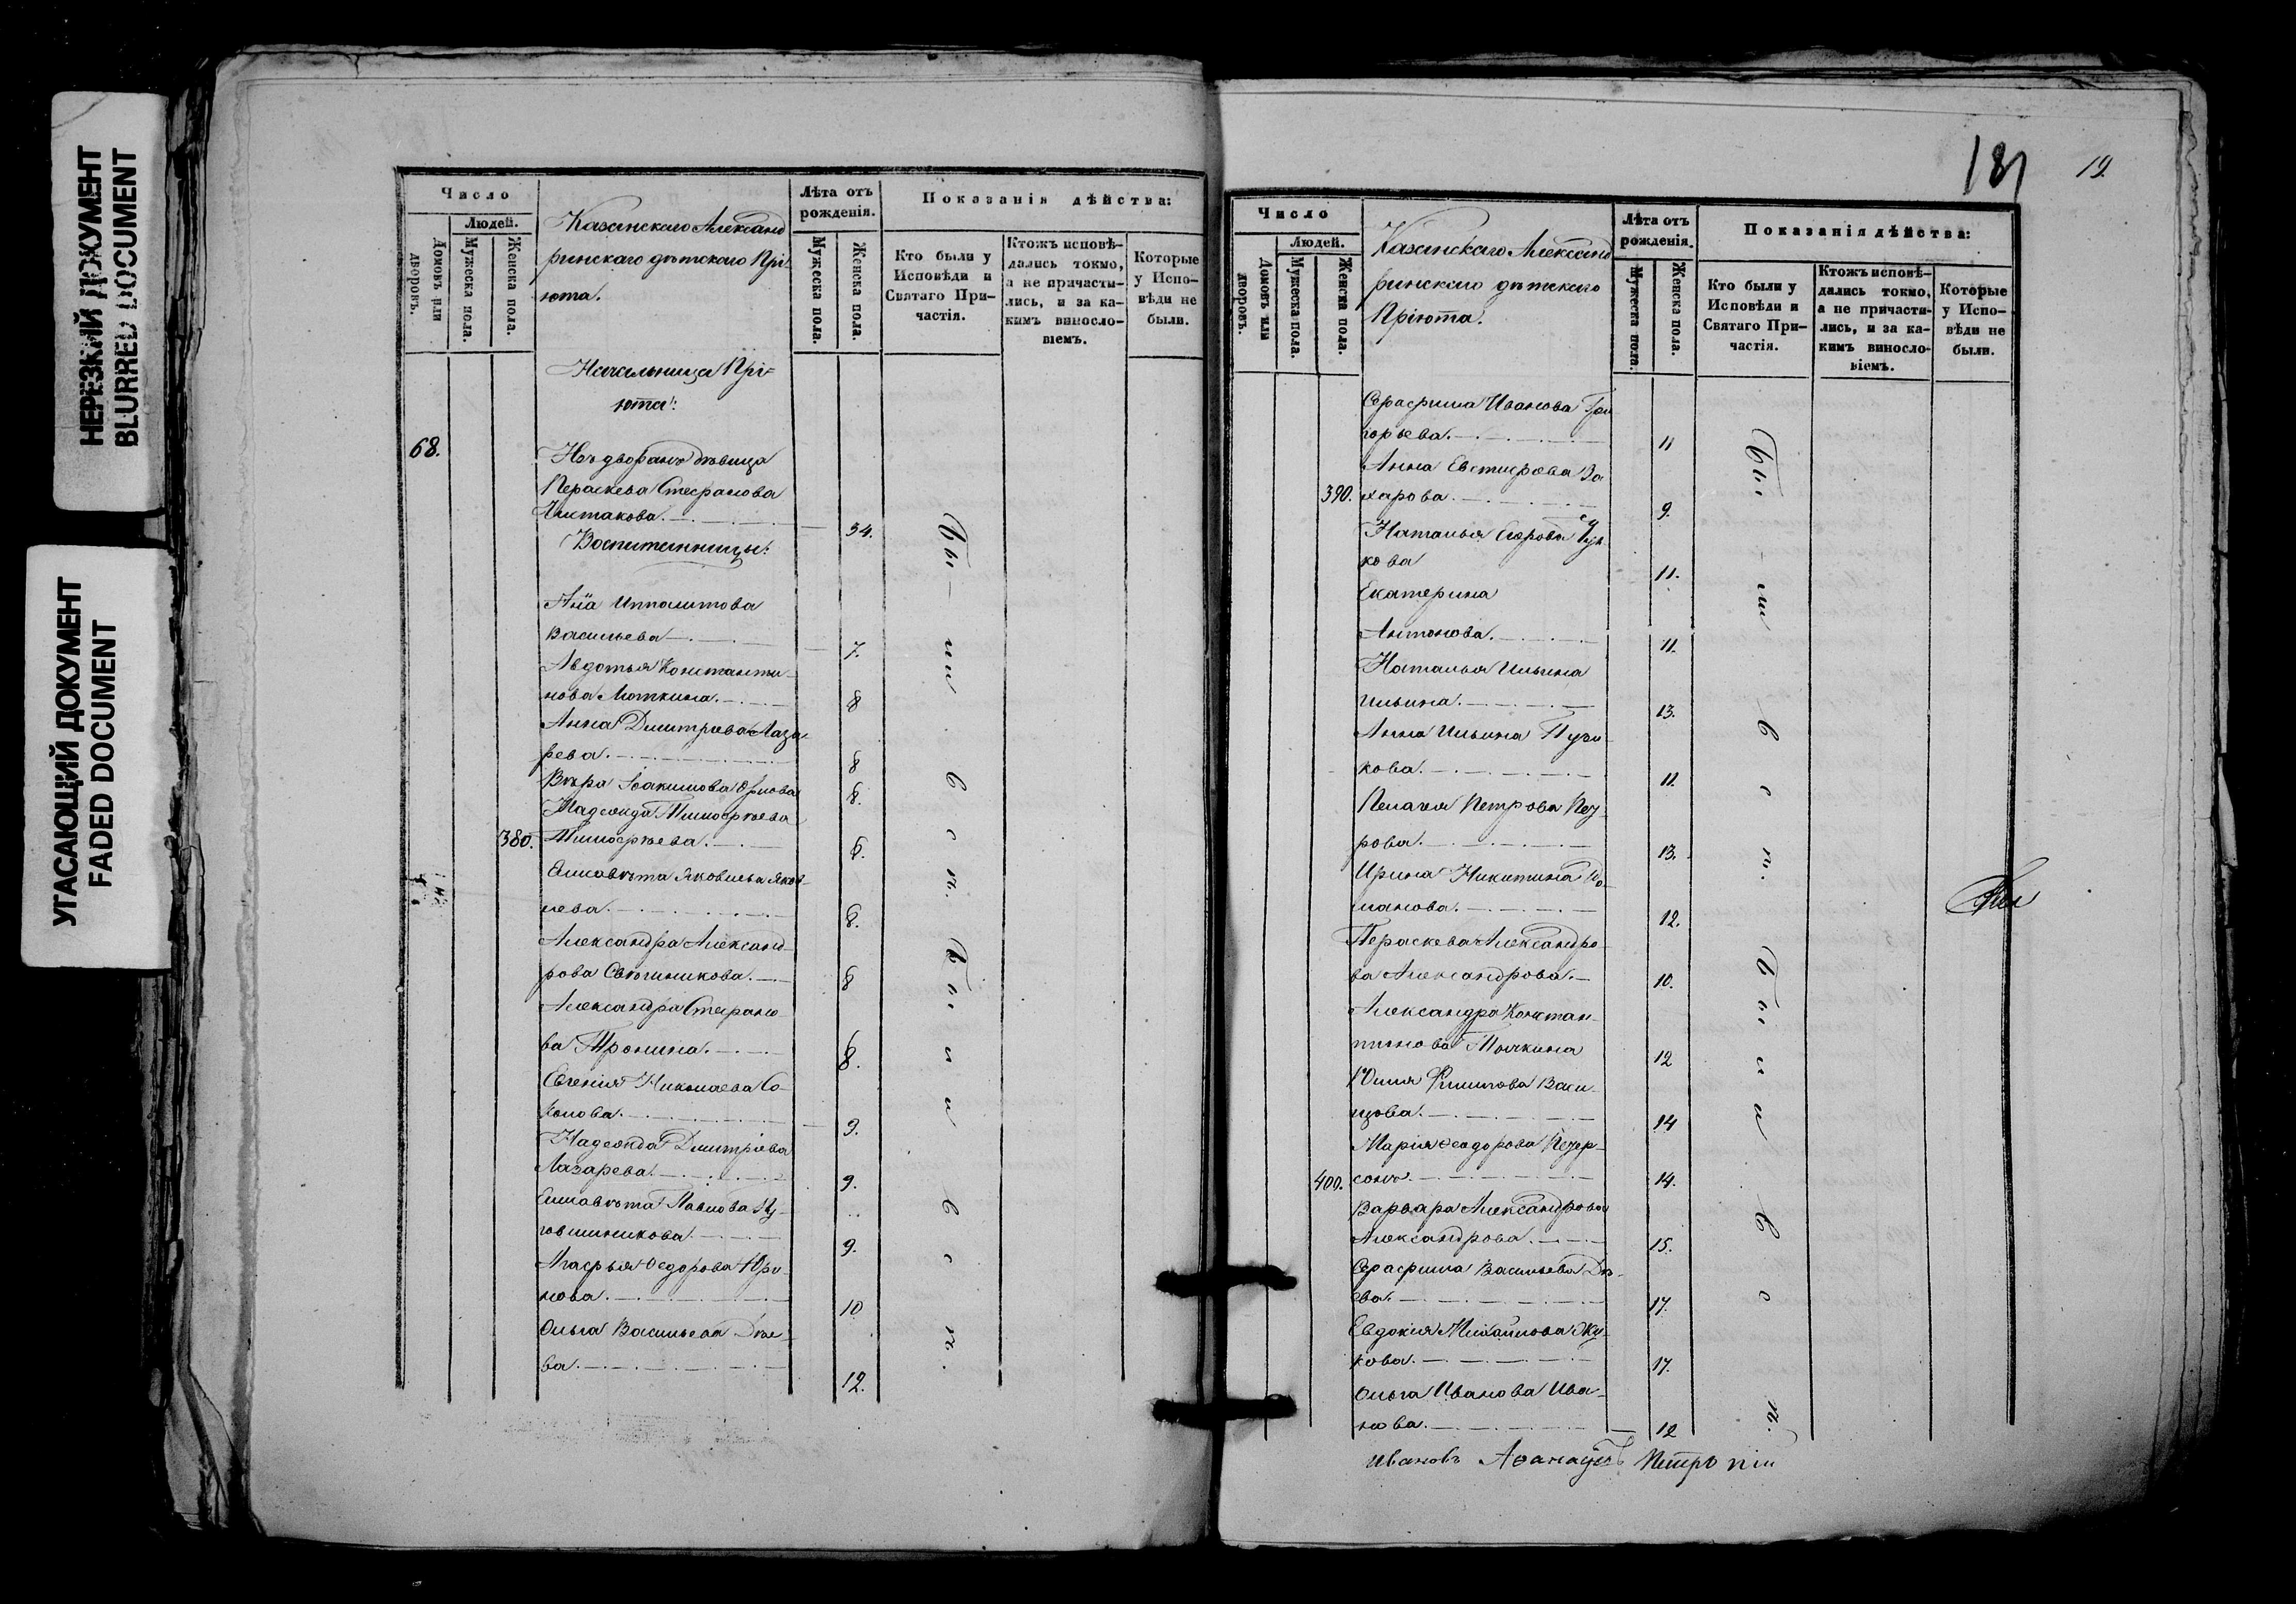 НЕРЕЗКИЙ ДОКУМЕНТ
BLURRED DOCUMENT
УГАСАЮЩИЙ ДОКУМЕНТ
FADED DOCUMENT
Число
Людей.
Домовъ или дворовъ.
Мужеска пола.
Женска пола.
Казанскаго Александ
ринскаго дѣтскаго Прі-
юта.
Лѣта отъ рожденія.
Мужеска пола.
Женска пола.
Показанія дѣйства:
Кто были у Исповѣди и Святаго При-частія.
Ктожъ исповѣ-дались токмо, а не причасти-лись, и за ка-кимъ винослo-віемъ.
Которые у Испо-вѣди не были.
Начальница Прі-
юта:
68.
Изъ дворянъ дѣвица
Параскева Стефанова
34.
Воспитанницы:
Анна Ипполитова
Васильева 7.
Авдотья Константи-
нова Лоткина. 8
Анна Дмитріева Лаза-
рева. 8
Вѣра Іоакимова Орлова 8.
Надежда Тимофѣева
380. Тимофѣева. 8.
Елизавѣта Яковлева Яков-
лева. 8.
Александра Александ-
рова Свѣшникова. 8
Александра Стефано
ва Тронина. 8.
Евгенія Николаева Со-
колова. 9.
Надежда Дмитріева
Лазарева. 9.
Елизавѣта Павлова
9.
Агафья Ѳедорова
нова. 10
Ольга Васильева Дѣе-
ва. 12.
Бы-ли
в с п.
Бы л и
в с п.
181
19.
Число
Людей.
Домовъ или дворовъ.
Мужеска пола.
Женска пола.
Казанскаго Александ
ринскаго дѣтскаго
Пріюта.
Лѣта отъ рожденія.
Мужеска пола.
Женска пола.
Показанія дѣйства:
Кто были у Исповѣди и Святаго При-частія.
Ктожъ исповѣ-дались токмо, а не причасти-лись, и за ка-кимъ винослo-віемъ.
Которые у Испо-вѣди не были.
Серафима Иванова Гри
горьева. 11
Анна Евстифѣева За
390. харова. 9.
Наталья
кова 11.
Екатерина
Антонова. 11.
Наталья Ильина
Ильина. 13.
Анна Ильина Пузи-
кова. 11.
Пелагея Петрова Пет-
рова. 13.
Ирина Никитина Ро-
манова. 12.
Параскева Александро-
ва Александрова. 10.
Александра Констан-
тинова Точкина 12
Юлія Филипова Васи-
14
Марія Ѳеодорова Петер-
400. сонъ. 14.
Варвара Александрова
Александрова. 15.
Серафима Васильева Дѣ-
ева. 17.
Евдокія Михайлова Жу-
кова. 17.
Ольга Иванова Ива-
нова. 12
Бы-ли
в с п.
Бы л и
в с п.
Ивановъ Аѳанасій